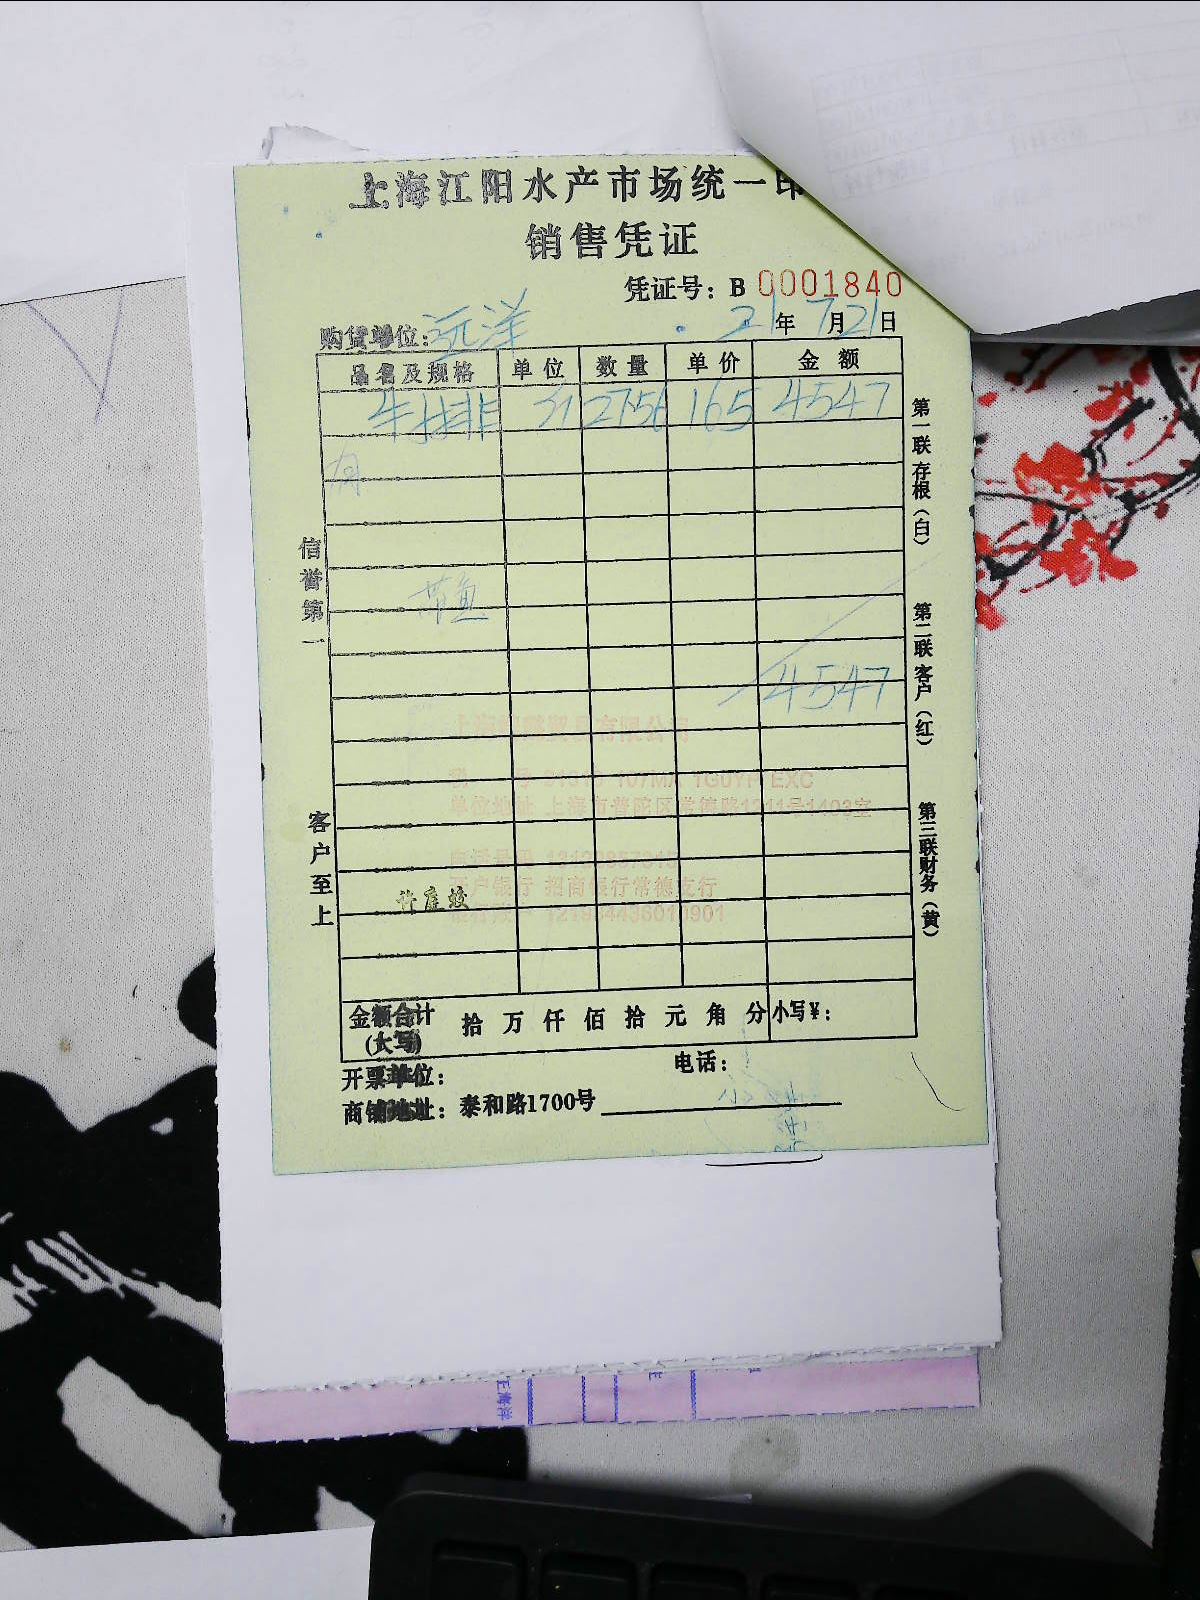 上海江阳水产市场统一印
销售凭证
凭证号：B 0001840
购货单位：远洋 21年7月21日
品名及规格 单位 数量 单价 金额
牛排 31 2756 165 4547
带鱼
4547
信誉第一
客户至上
第一联存根（白）
第二联客户（红）
第三联财务（黄）
有限公司
单位地址 上海市普陀区常德路1211号1403室
开户银行 招商银行常德支行
金额合计(大写) 拾万仟佰拾元角分 小写¥：
开票单位： 电话：
商铺地址：泰和路1700号